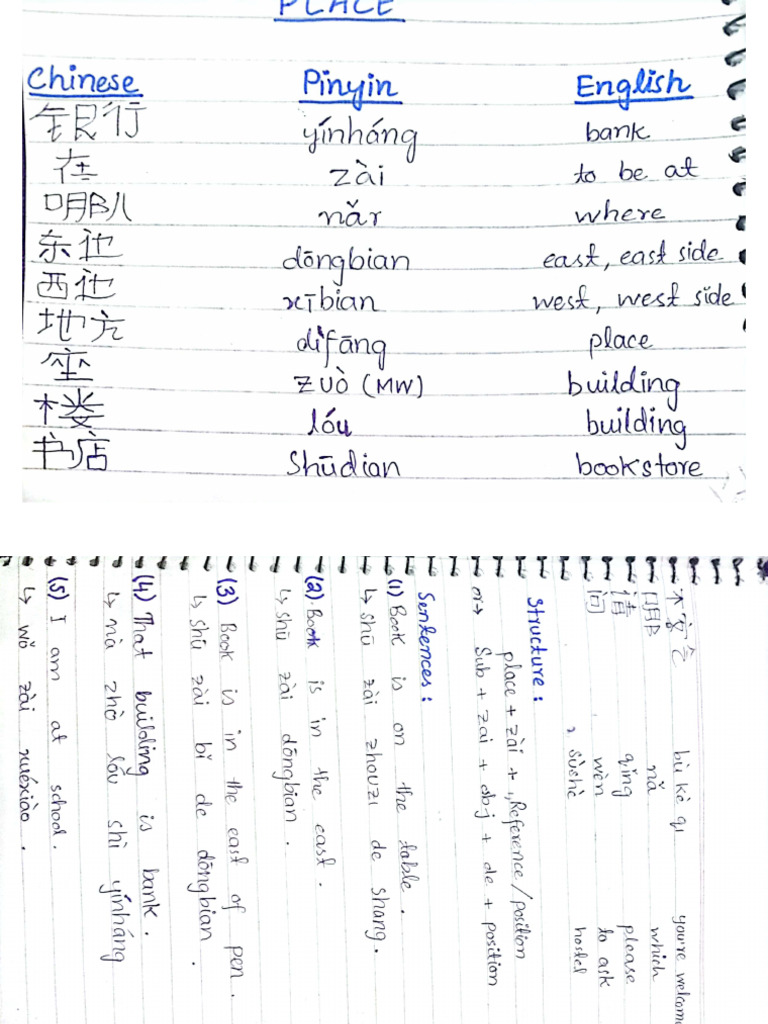 PLACE
Chinese Pinyin English
银行 yínháng bank
在 zài to be at
哪儿 nǎr where
东边 dōngbian east, east side
西边 xībian west, west side
地方 dìfāng place
座 zuò (MW) building
楼 lóu building
书店 Shūdian bookstore
不客气 bù kè qi you're welcome
哪 nǎ which
请 qǐng please
问 wèn to ask
sùshè hostel
Structure:
place + zài + Reference/position
or→ Sub + zai + obj + de + position
Sentences:
(1) Book is on the table.
↳ shū zài zhouzi de shang.
(2). Book is in the east.
↳ shū zài dōngbian.
(3) Book is in the east of pen.
↳ shū zài bǐ de dōngbian.
(4) That building is bank.
↳ nà zhò lóu shì yínháng
(5) I am at school.
↳ wǒ zài xuéxiào.